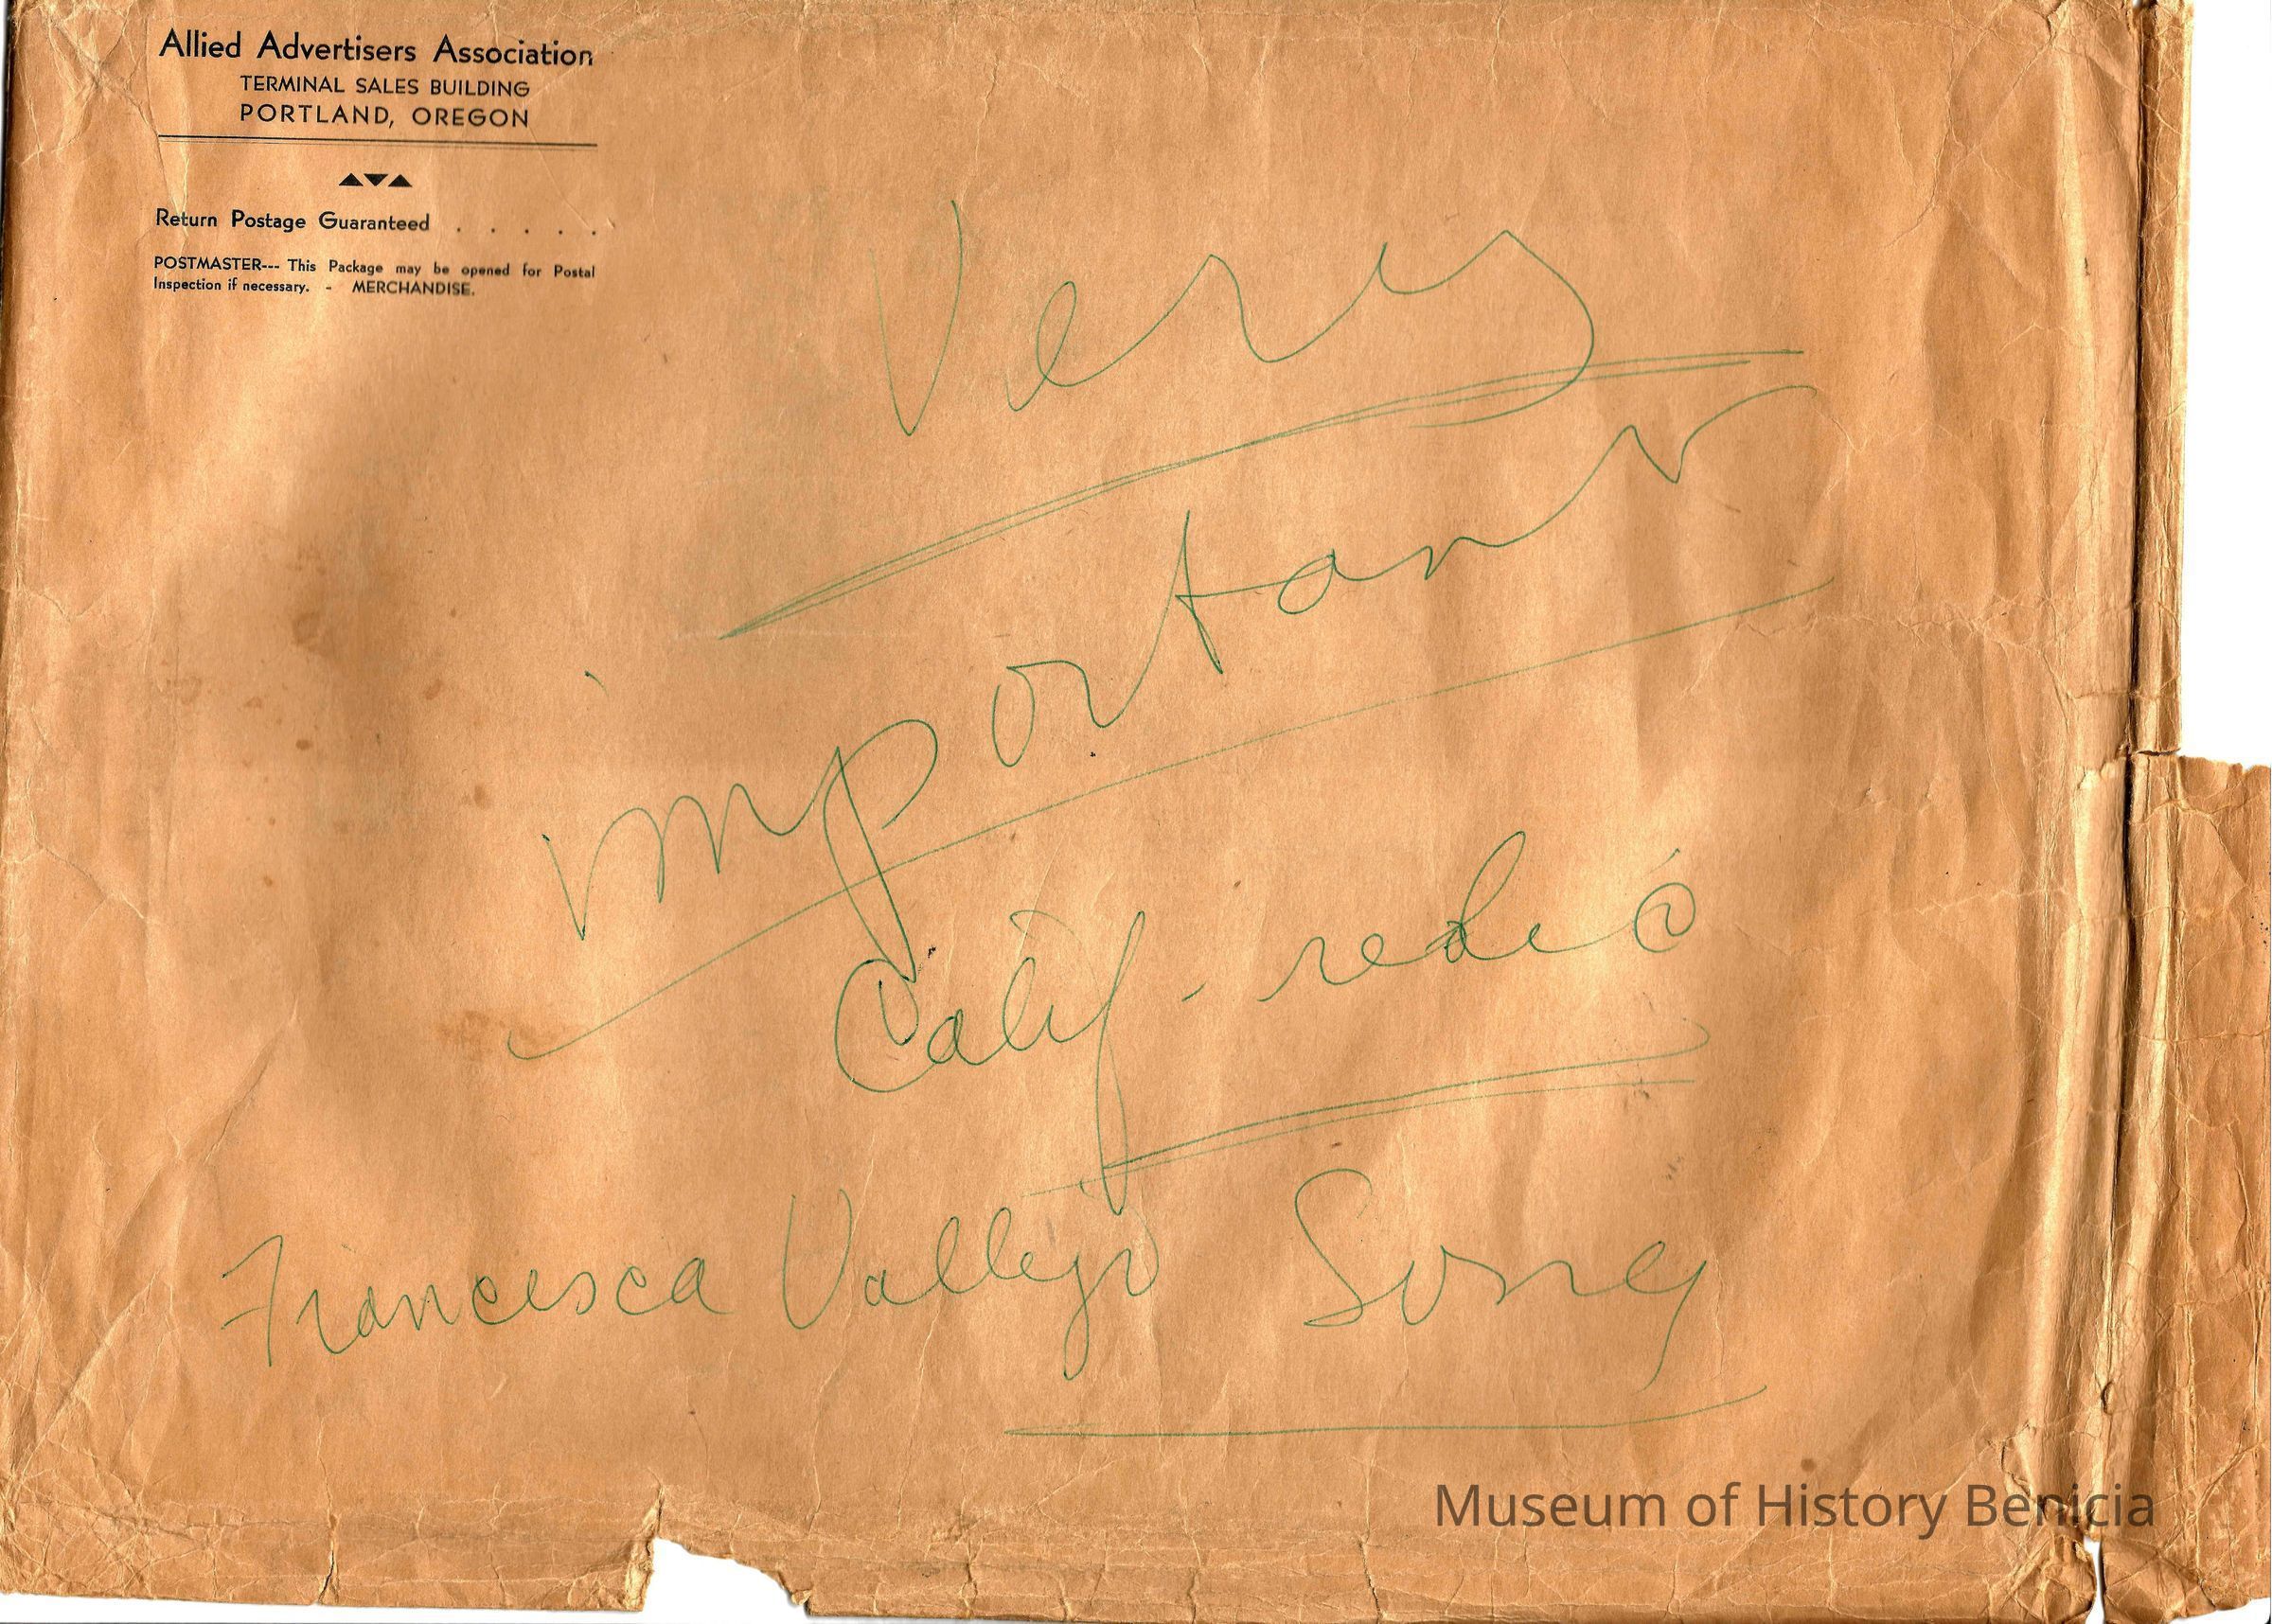 Allied Advertisers Association
TERMINAL SALES BUILDING
PORTLAND, OREGON
Return Postage Guaranteed . . . . .
POSTMASTER--- This Package may be opened for Postal
Inspection if necessary. - MERCHANDISE.
Very
important
Calif - redio
Francesca Vallejo Song
Museum of History Benicia